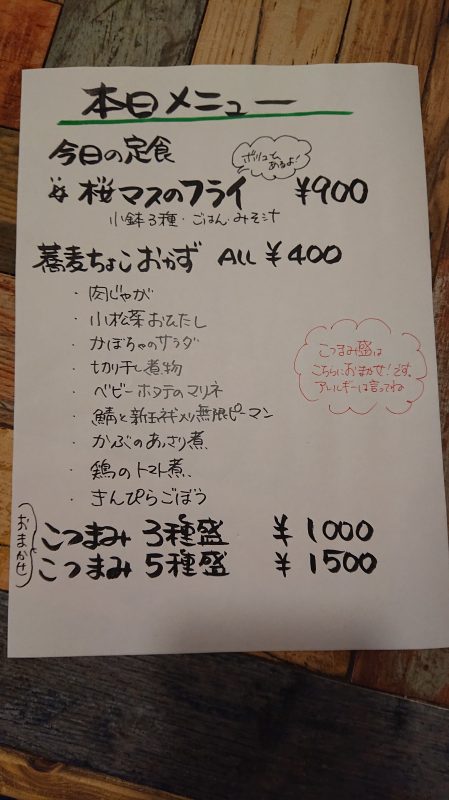 本日メニュー
今日の定食
ボリューム
あるよ!
桜マスのフライ ¥900
小鉢3種・ごはん・みそ汁
蕎麦ちょこおかず ALL ¥400
・肉じゃが
・小松菜おひたし
・かぼちゃのサラダ
・切り干し煮物
・ベビーホタテのマリネ
・鯖と新玉ネギ入り無限ピーマン
・かぶのあっさり煮
・鶏のトマト煮
・きんぴらごぼう
こつまみ盛は
こちらにおまかせ!です。
アレルギーは言ってね
おまかせ
こつまみ 3種盛 ¥1000
こつまみ 5種盛 ¥1500